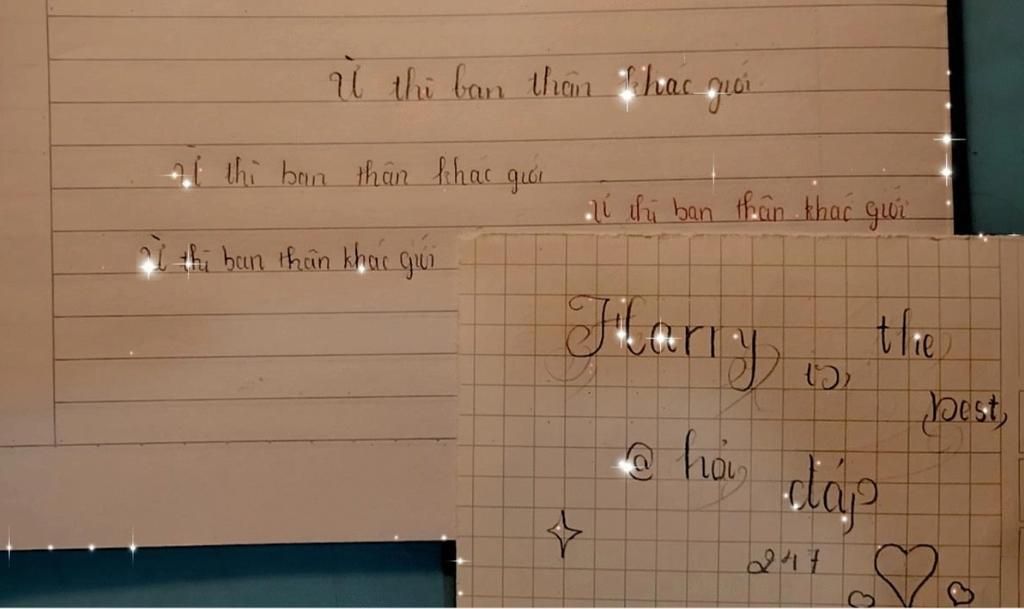 Ừ thì bạn thân khác giới
Ừ thì bạn thân khác giới
Ừ thì bạn thân khác giới
Ừ thì bạn thân khác giới
Harry is the best
@ hỏi đáp
247